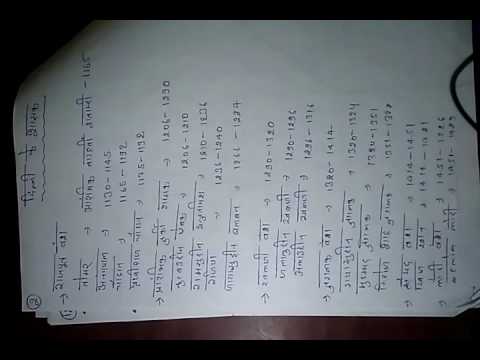 ② दिल्ली के शासक
① → राजपूत वंश
तोमर → प्रारंभिक तोमर शताब्दी - 1165
अनंगपाल → 1130-1145
चौहान → 1165-1192
पृथ्वीराज चौहान → 1175-1192
→ प्रारंभिक तुर्की शासक → 1206-1290
कुतुबुद्दीन ऐबक → 1206-1210
शमसुद्दीन इल्तुतमिश → 1210-1236
रजिया → 1236-1240
गयासुद्दीन बलबन → 1266-1287
→ खलजी वंश → 1290-1320
जलालुद्दीन खलजी → 1290-1296
अलाउद्दीन खलजी → 1296-1316
→ तुगलक वंश → 1320-1414
गयासुद्दीन तुगलक → 1320-1324
मुहम्मद तुगलक → 1324-1351
फिरोज शाह तुगलक → 1351-1388
→ सैयद वंश → 1414-1451
खिज्र खान → 1414-1421
→ लोदी वंश → 1451-1526
बहलोल लोदी → 1451-1489